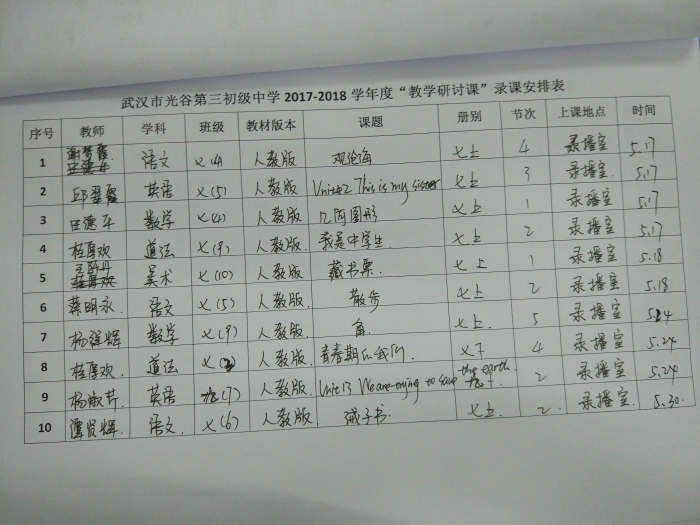 武汉市光谷第三初级中学 2017-2018 学年度“教学研讨课”录课安排表
序号 教师 学科 班级 教材版本 课题 册别 节次 上课地点 时间
1 语文 七(4) 人教版 观沧海 七上 4 录播室 5.17
2 邱翠霞 英语 七(5) 人教版 Unite2 This is my sister 七上 3 录播室 5.17
3 田德军 数学 七(4) 人教版 几何图形 七上 1 录播室 5.17
4 程厚欢 道法 七(9) 人教版 我是中学生 七上 2 录播室 5.17
5 美术 七(10) 人教版 藏书票 七上 1 录播室 5.18
6 蔡明永 语文 七(5) 人教版. 散步 七上 2 录播室 5.18
7 杨祥辉 数学 七(9) 人教版. 角. 七上. 5 录播室. 5.24
8 程厚欢. 道法 人教版. 青春期 七下 4 录播室. 5.24
9 杨淑芹. 英语 九(7) 人教版. Unit13 We are trying to save the earth. 九. 2 录播室. 5.24
10 谭贤辉. 语文. 七(6) 人教版 诫子书. 七上. 2. 录播室. 5.30.